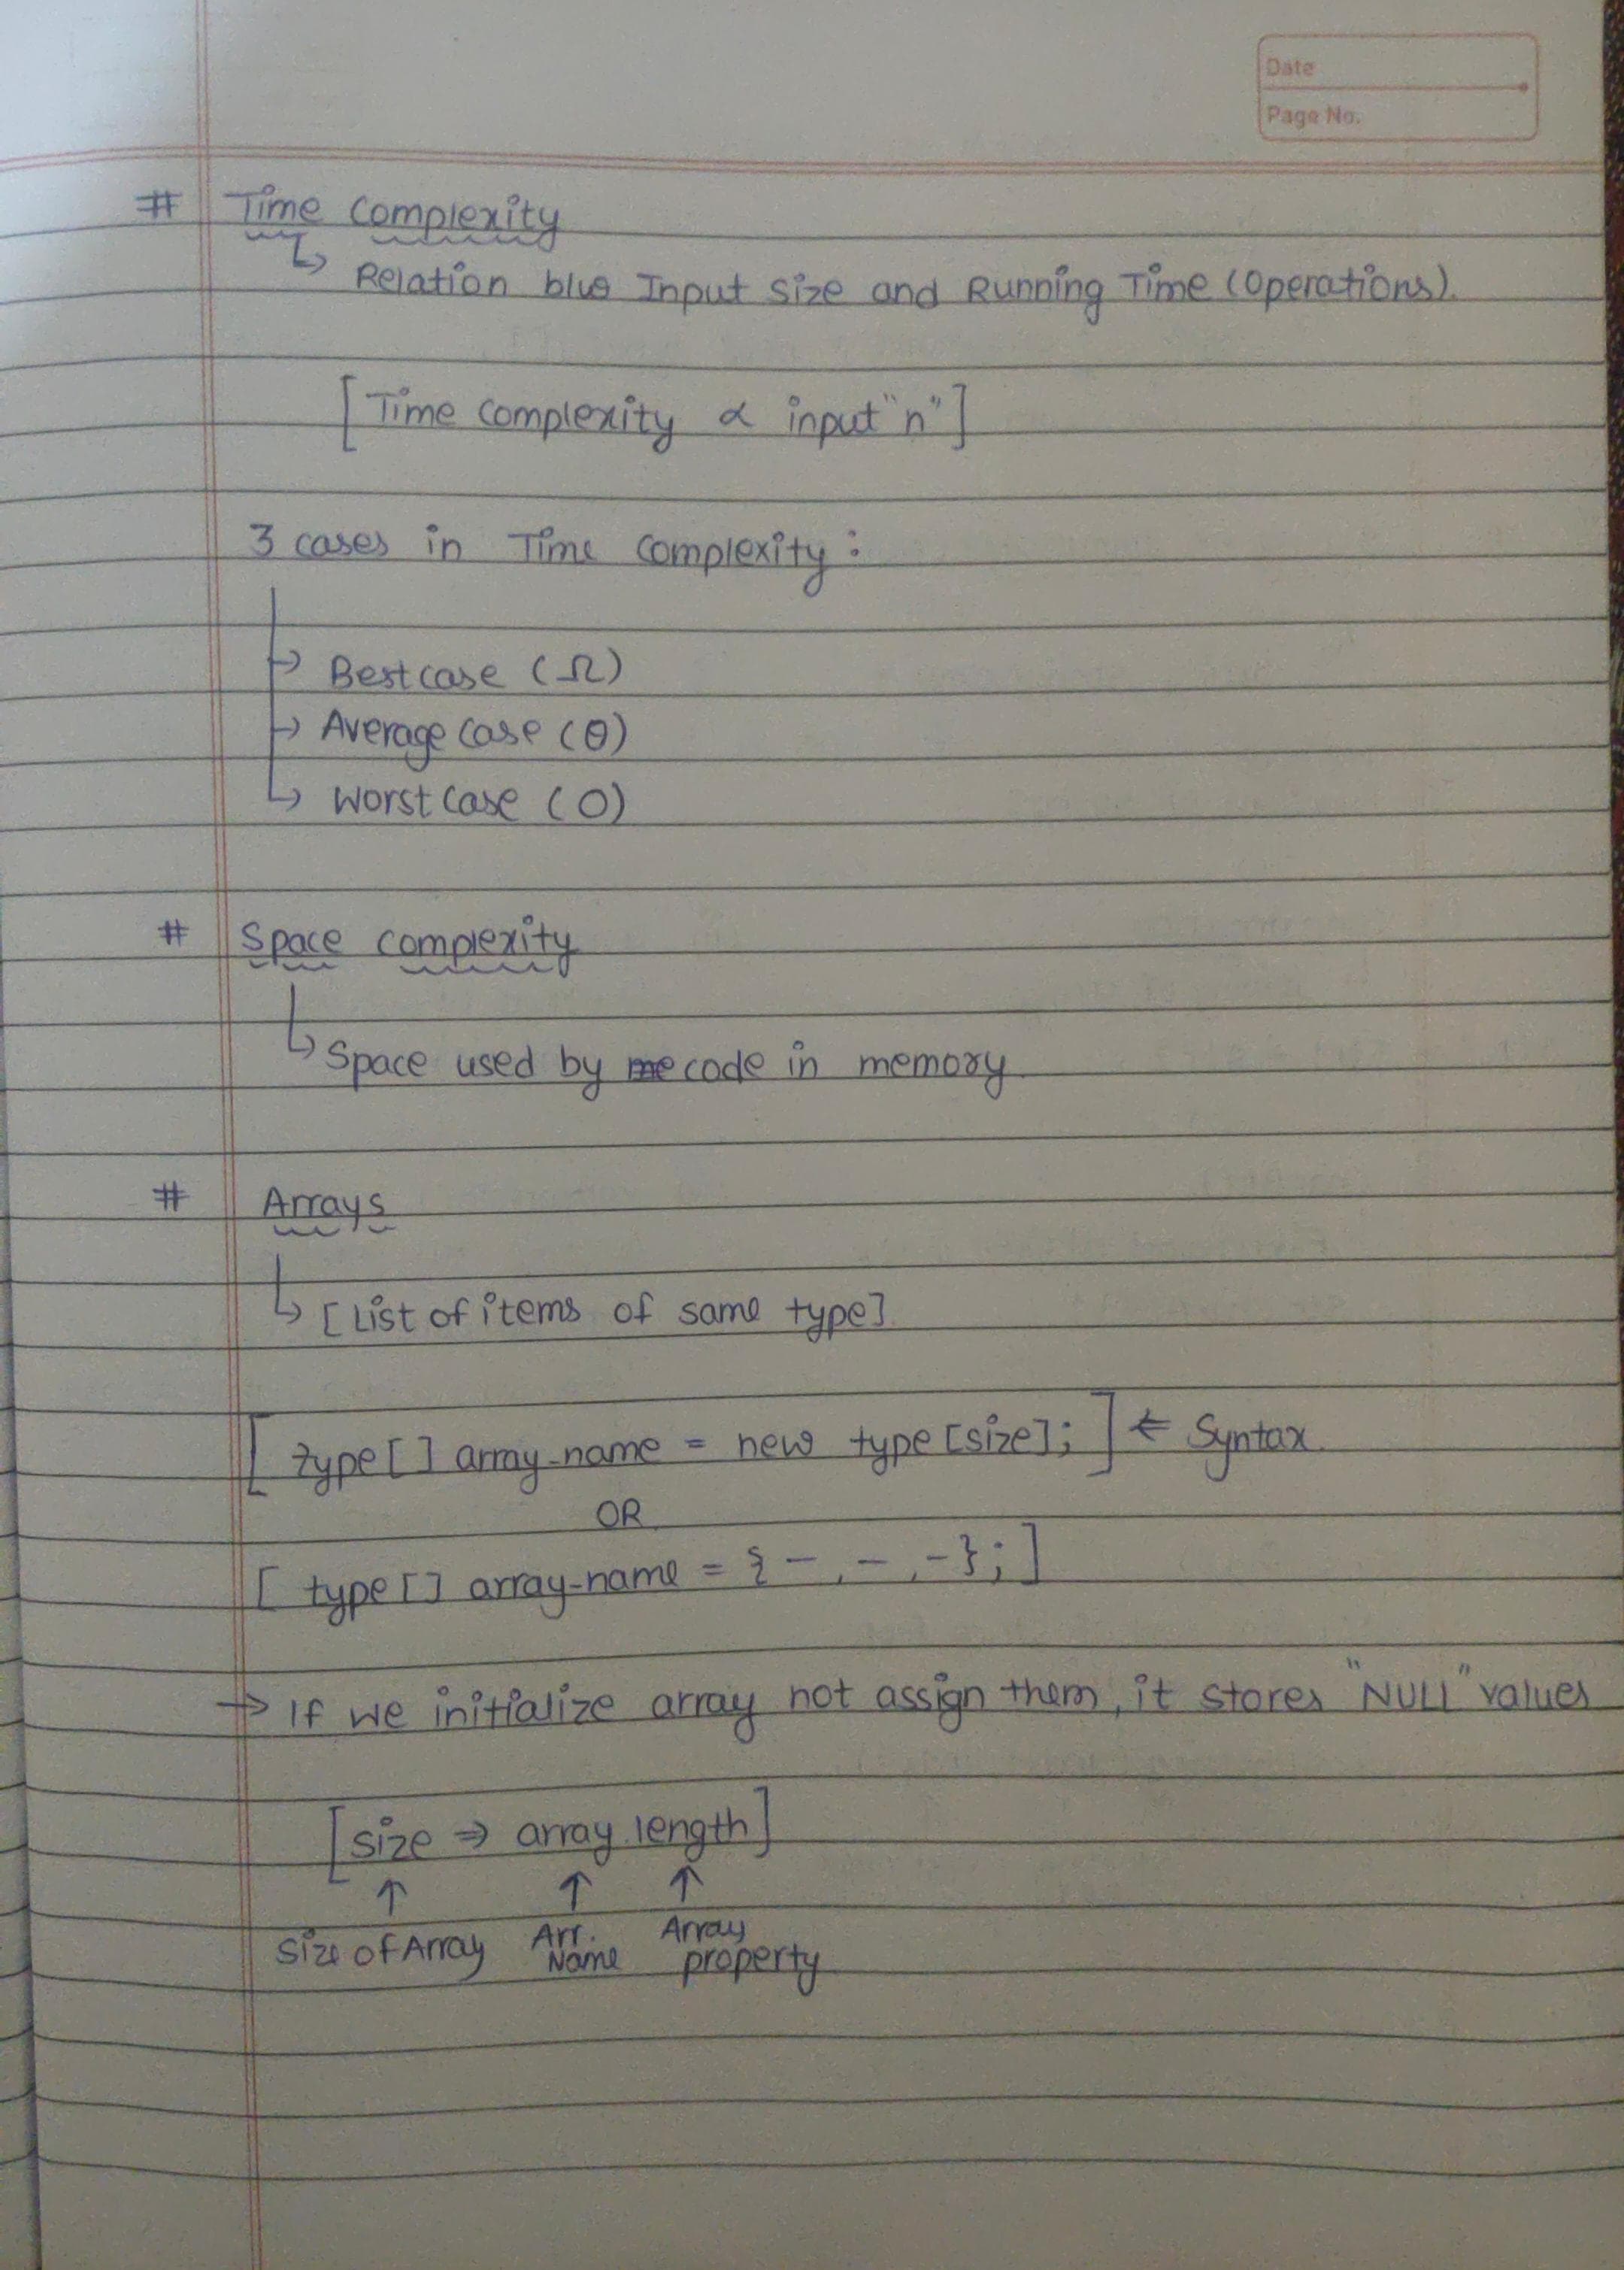 Date
Page No.
# Time Complexity
↳ Relation b/w Input Size and Running Time (Operations).
[Time complexity ∝ input "n"]
3 cases in Time Complexity :
→ Best case (Ω)
→ Average case (θ)
↳ Worst case (O)
# Space complexity
↳ Space used by code in memory
# Arrays
↳ [List of items of same type]
[ type[] array-name = new type[size]; ] ← Syntax
OR
[ type[] array-name = { - , - , - }; ]
→ If we initialize array not assign them, it stores "NULL" values
[size ⇒ array.length]
↑ ↑ ↑
Size of Array Arr. Name Array property